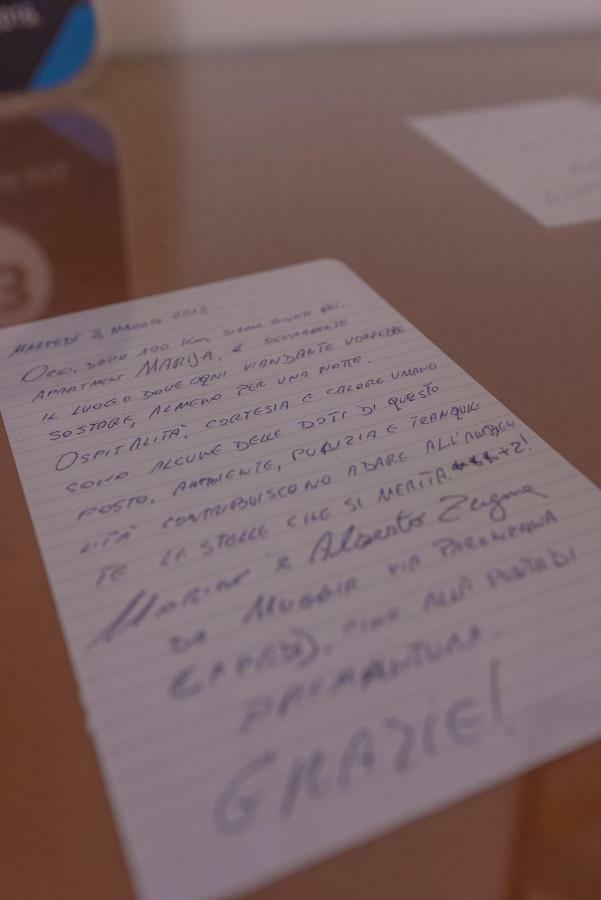 2018.
3
MARTEDÌ 8 MAGGIO 2018
OGGI, DOPO 100 KM, SIAMO GIUNTI QUI.
APARTMENT MARIJA, È SICURAMENTE
IL LUOGO DOVE OGNI VIANDANTE VORREBBE
SOSTARE, ALMENO PER UNA NOTTE.
OSPITALITÀ, CORTESIA E CALORE UMANO
SONO ALCUNE DELLE DOTI DI QUESTO
POSTO. AMBIENTE, PULIZIA E TRANQUIL-
LITÀ CONTRIBUISCONO A DARE ALL'AMBIEN
TE LE STELLE CHE SI MERITA. +2!
MARINO & Alberto
DA MUGGIA VIA PARENZANA
FINO ALLA PUNTA DI
PREMANTURA.
GRAZIE!